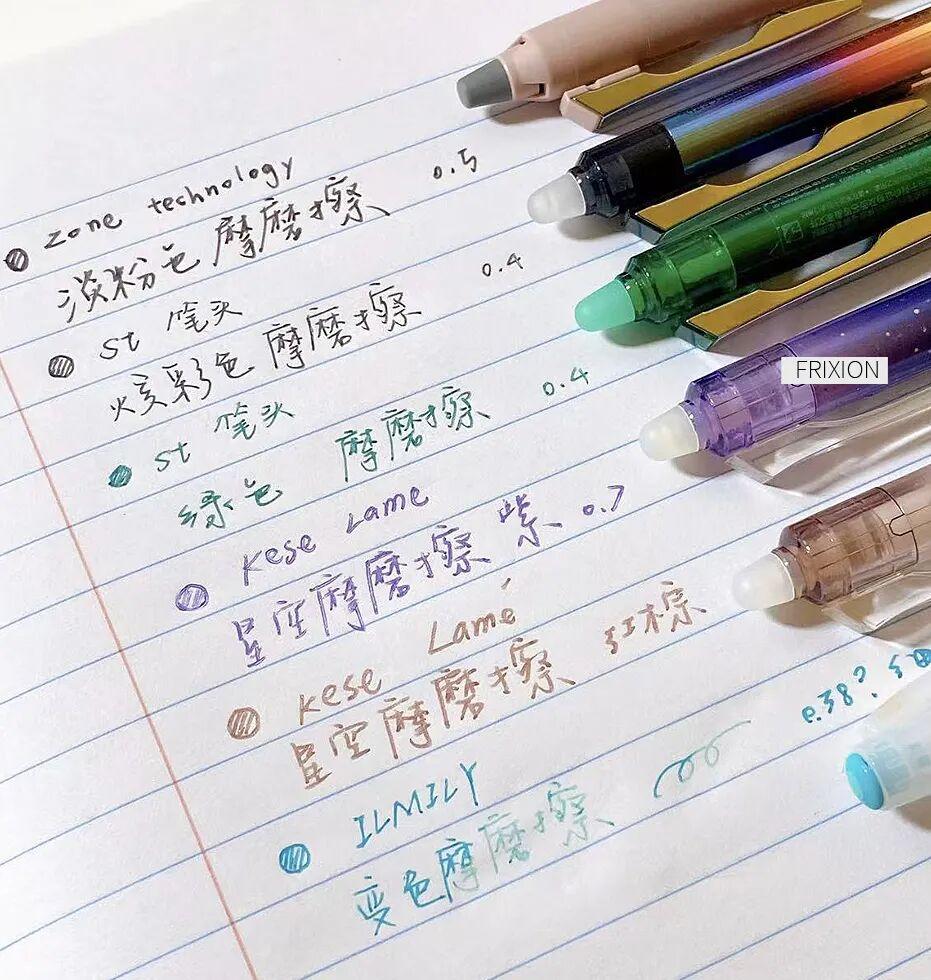 zone technology
淡粉色 摩磨擦 0.5
st 笔头
炫彩色 摩磨擦 0.4
st 笔头
绿色 摩磨擦 0.4
kese Lame
星空摩磨擦 紫 0.7
kese Lamé
星空摩磨擦 红棕
ILMILY
变色摩磨擦
FRIXION